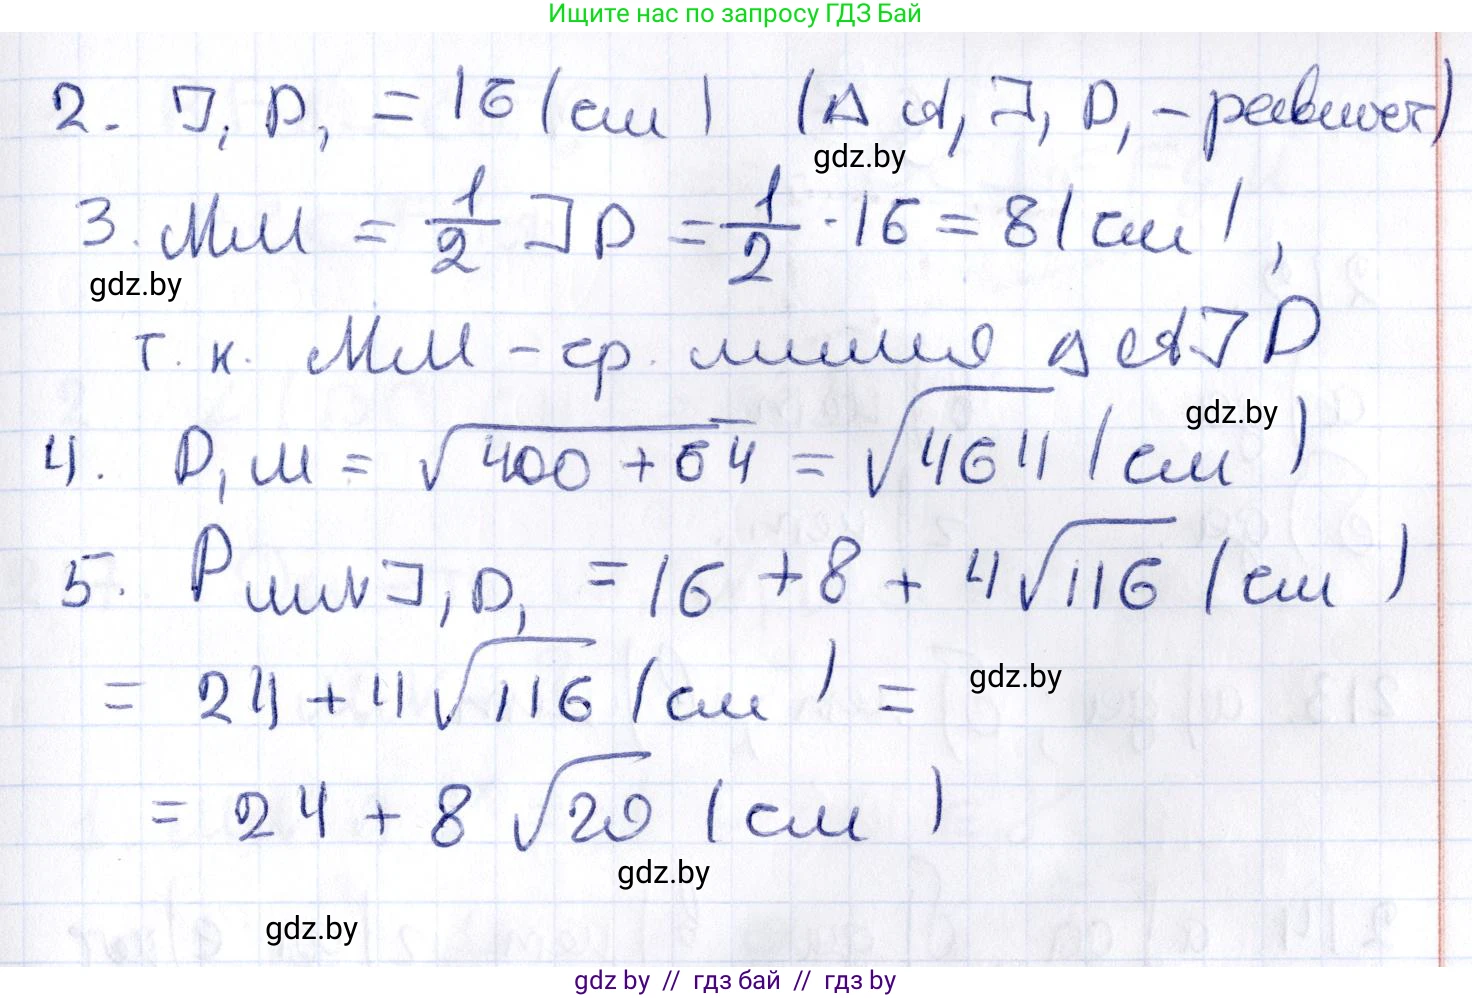 Ищите нас по запросу ГДЗ Бай
2. J₁D₁ = 16 (см) (Δ A₁J₁D₁ – равност)
gdz.by
3. MM = 1/2 JD = 1/2 · 16 = 8 (см),
gdz.by
т. к. MM – ср. линия Δ AJD
gdz.by
4. D₁M = √400 + 64 = √464 (см)
5. P J₁D₁ = 16 + 8 + 4√116 (см)
= 24 + 4√116 (см) =
gdz.by
= 24 + 8 √29 (см)
gdz.by
gdz.by
gdz by // гдз бай // гдз by